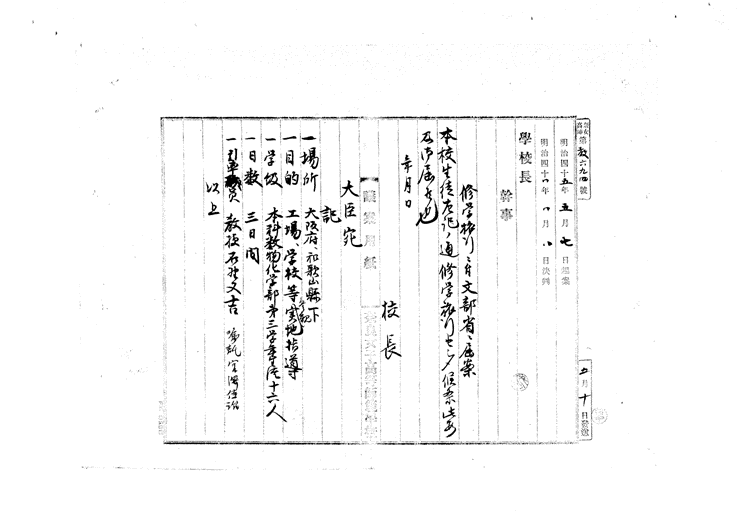 第六九四號
明治四十五年五月七日起案
明治四十 年 月 日決判
學校長
幹事
修学旅行ニ付文部省ヘ届案
本校生徒左記ノ通修学旅行セシメ候条此
及御届候也
年月日
校長
大臣宛
記
一場所 大阪府、和歌山縣下
一目的 工場、学校等実地指導
一学級 本科数物化学部第三学年生徒十六人
一日数 三日間
一引率職員 教授石野又吉
以上
議案用紙
五月十日發送